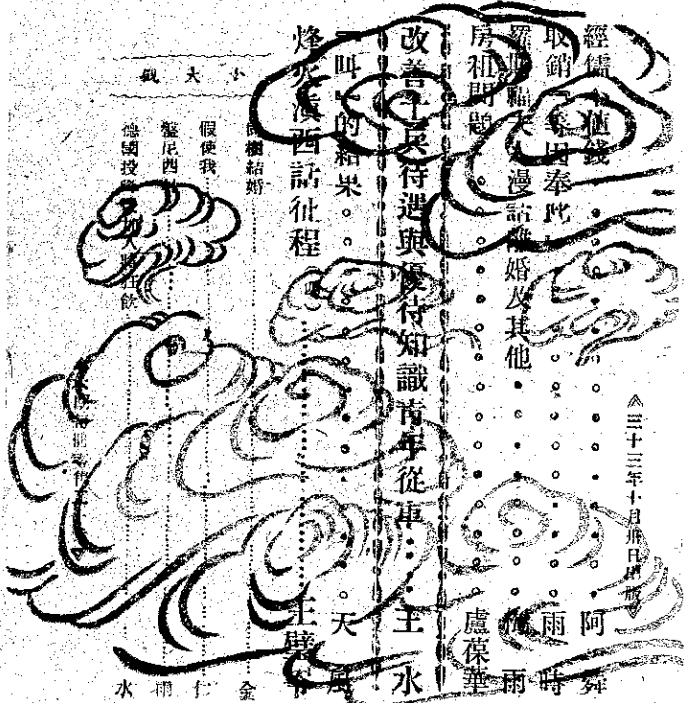 《三十三年十月卅日出版》
經儒 值錢 阿舞
取銷「等因奉此」 雨時
羅斯福夫人漫話離婚及其他 梅雨
房租問題 盧葆華
改善士兵待遇與優待知識青年從軍 王水
「叫」的結果 天風
烽火滇西話征程 王璧岑
小大觀
樹結婚 金
假使我 仁
盤尼西 雨
德國投 人 狂飲 水